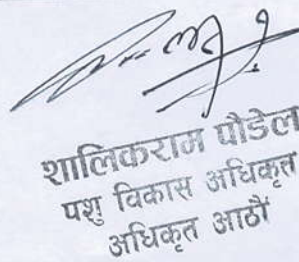 शालिकराम पौडेल
पशु विकास अधिकृत
अधिकृत आठौं